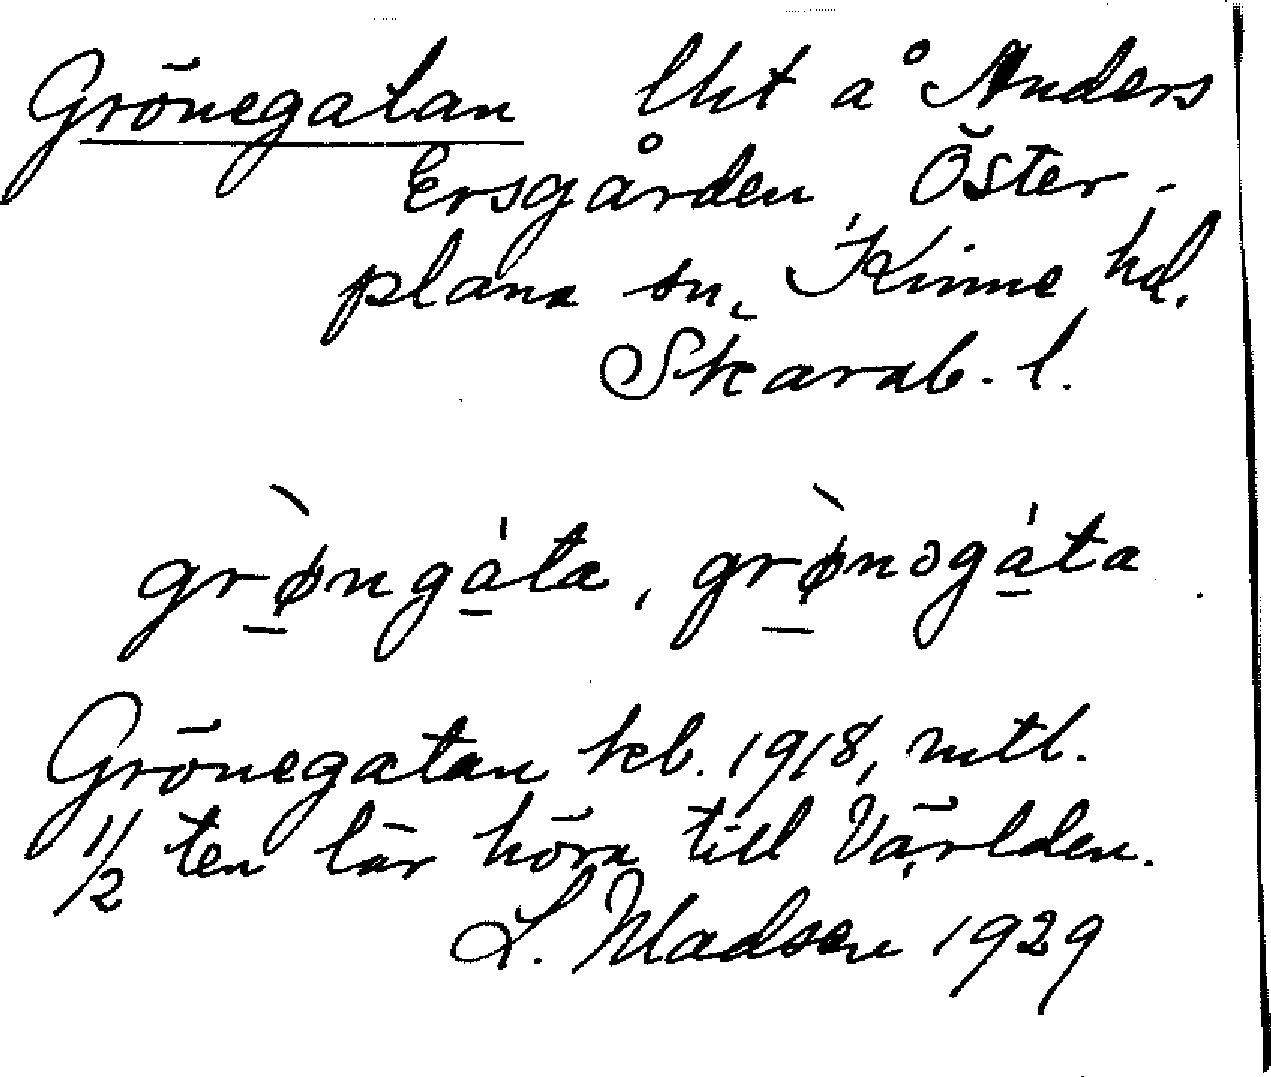 Grönegatan lht å Anders
Ersgården, Öster-
plana sn, Kinne hd.
Skarab. l.
grø̀ngáta, grø̀nəgáta.
Grönegatan kb. 1918, mtl.
1/2 ten lär höra till Världen.
L. Madsen 1929